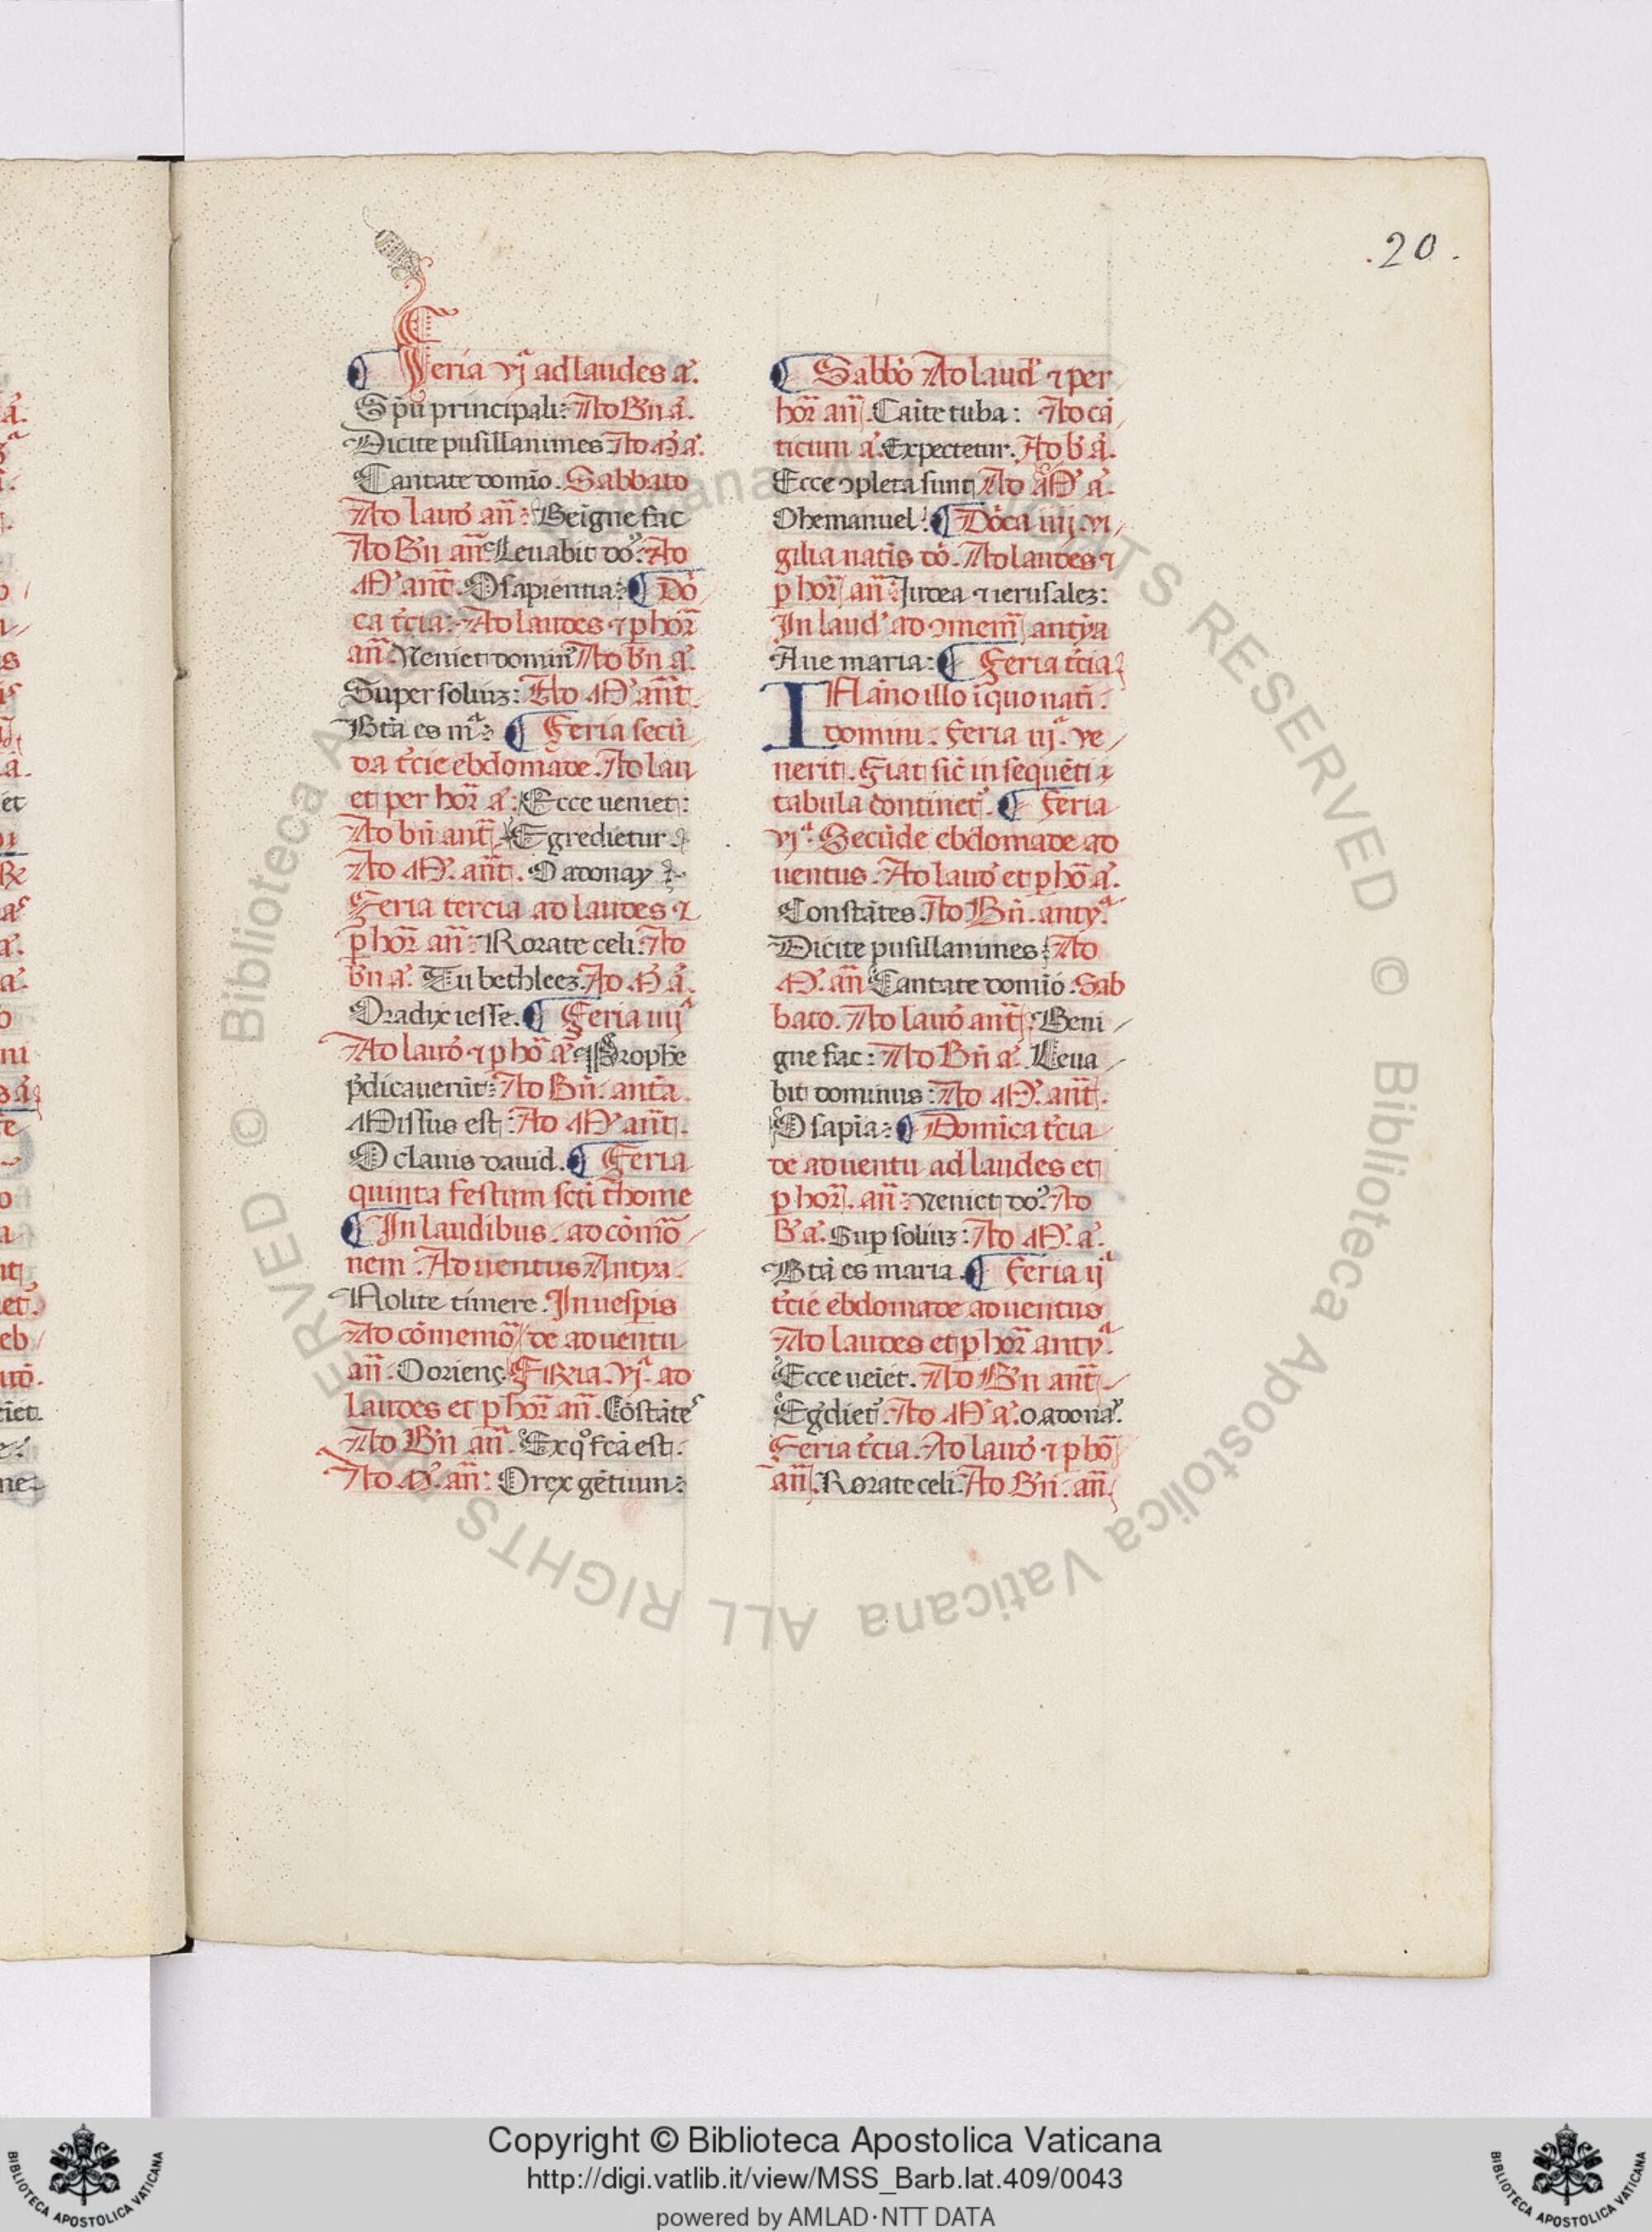 .20.
Feria vjª ad laudes a᷑.
Sp̄u principali: Ad Bn̄ a᷑.
Dicite pusillanimes Ad M̄ a᷑.
Cantate domīo. Sabbato
Ad laud̄ an̄: Beigne fac
Ad Bn̄ an̄. Leuabit do᷒: Ad
M᷑ ant̄. O sapientia: ¶ Dō
ca t̄cia: Ad laudes ⁊ ꝑ hor̄
an̄. Veniet domin᷒ Ad bn̄ a᷑.
Super soliuꝫ: Ad M᷑ an̄t.
Bt̄a es mª: ¶ Feria secū
da t̄cie ebdomade. Ad lau
et per hor̄ a᷑: Ecce ueniet:
Ad bn̄ ant̄. Egredietur.
Ad M᷑. ant̄. O adonay
Feria tercia ad laudes ⁊
ꝑ hor̄ an̄: Rorate celi. Ad
bn̄ a᷑. Tu bethleeꝫ. Ad M̄ a᷑.
O radix iesse. ¶ Feria iiijª
Ad laud̄ ⁊ ꝑ hō a᷑. Prophē
p̄dicauerūt: Ad Bn̄. ant̄a.
Missus est: Ad M᷑ ant̄.
O clauis dauid. ¶ Feria
quinta festum sc̄ti thome
¶ In laudibus. ad cōmō
nem. Aduentus Antyᵃ.
Nolite timere. In uesp̄is
Ad cōmemō de aduentu
an̄. O oriens. Feria. vjª. ad
laudes et ꝑ hor̄ an̄. Cōstātes
Ad Bn̄ an̄. Ex qº fc̄a est.
Ad M᷑. an̄: O rex gētium:
¶ Sabb̄o Ad laud᷑ ⁊ per
hor̄ an̄. Caīte tuba: Ad cā
ticum a᷑. Expectetur. Ad b᷑ a᷑.
Ecce ꝯpleta sunt Ad M᷑ a᷑.
O hemanuel: ¶ Dōca iiij. vi
gilia natīs dō. Ad laudes ⁊
ꝑ hor̄ an̄. Iudea ⁊ ierusaleꝫ:
In laud᷑ ad ꝯmem̄ antyᵃ
Aue maria: ¶ Feria t̄cia
IN āno illo ī quo nati.
domini. feria iijª. ve
nerit. Fiat sic̄ in sequēti
tabula continet᷑. ¶ Feria
vjª. Secūde ebdomade ad
uentus. Ad laud̄ et ꝑ hō a᷑.
Constātes. Ad Bn̄. antyᵃ.
Dicite pusillanimes: Ad
M᷑. an̄ Cantate domīo. Sab
bato. Ad laud̄ ant̄. Beni
gne fac: Ad Bn̄ a᷑. Leua
bit dominus: Ad M᷑. ant̄.
O sapīa: ¶ Domīca t̄cia
de aduentu ad laudes et
ꝑ hor̄. an̄: Veniet do᷒. Ad
B᷑ a᷑. Suꝑ soliuꝫ: Ad M᷑. a᷑.
Bt̄a es maria. ¶ Feria ijª
t̄cie ebdomade aduentus
Ad laudes et ꝑ hor̄ antyᵃ.
Ecce ueīet. Ad Bn̄ ant̄.
Eḡdiet᷑. Ad M᷑ a᷑. O adonaᵃ.
Feria t̄cia. Ad laud̄ ⁊ ꝑ hō
an̄. Rorate celi. Ad Bn̄. an̄
© Biblioteca Apostolica Vaticana ALL RIGHTS RESERVED
Copyright © Biblioteca Apostolica Vaticana
http://digi.vatlib.it/view/MSS_Barb.lat.409/0043
powered by AMLAD·NTT DATA
BIBLIOTECA APOSTOLICA VATICANA
BIBLIOTECA APOSTOLICA VATICANA